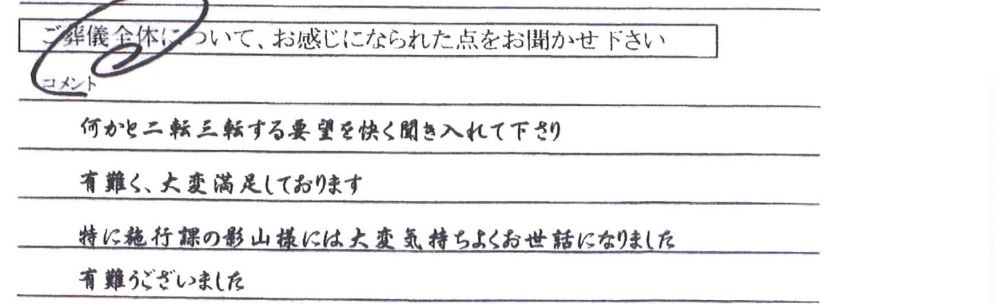 ご葬儀全体について、お感じになられた点をお聞かせ下さい
コメント
何かと二転三転する要望を快く聞き入れて下さり
有難く、大変満足しております
特に施行課の影山様には大変気持ちよくお世話になりました
有難うございました